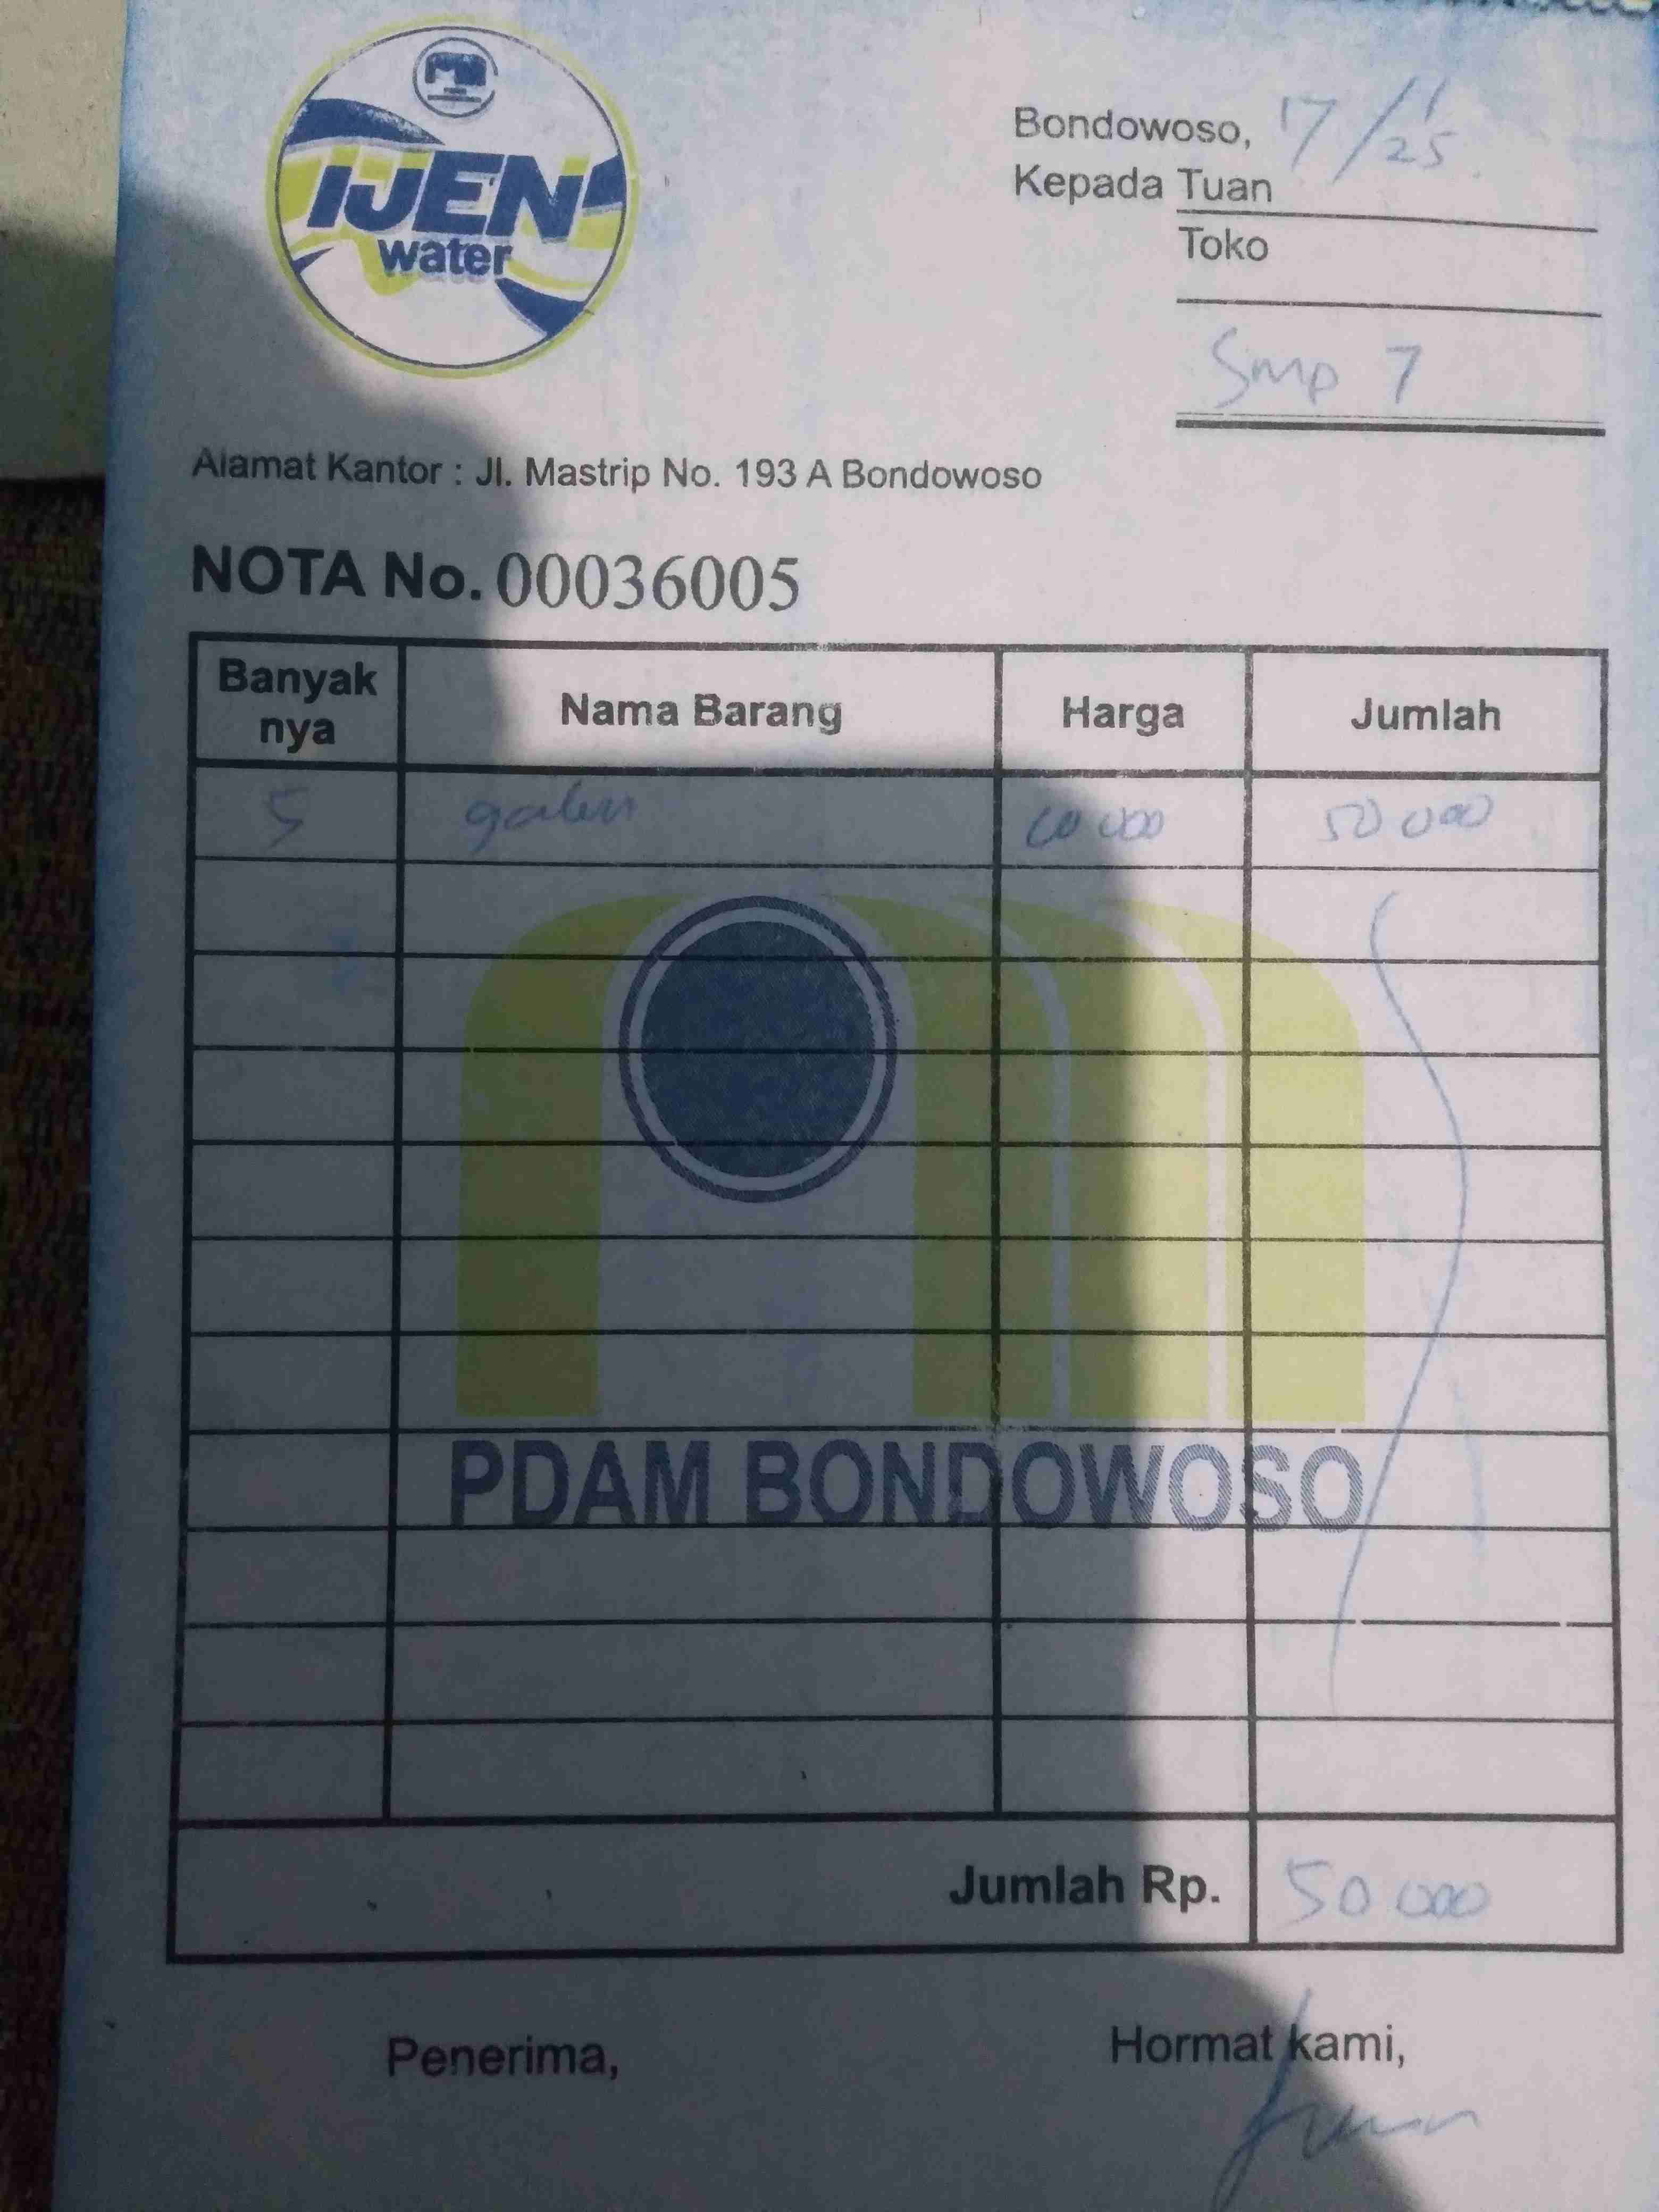 IJEN
water
Bondowoso, 17/1/25
Kepada Tuan
Toko
Smp 7
Alamat Kantor : Jl. Mastrip No. 193 A Bondowoso
NOTA No. 00036005
Banyak nya Nama Barang Harga Jumlah
5 galon 10 000 50 000
PDAM BONDOWOSO
Jumlah Rp. 50 000
Penerima, Hormat kami,